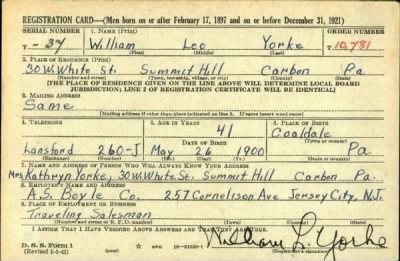 REGISTRATION CARD—(Men born on or after February 17, 1897 and on or before December 31, 1921)
SERIAL NUMBER 1. NAME (Print) ORDER NUMBER
T-37 William Leo Yorke T10,781
(First) (Middle) (Last)
2. PLACE OF RESIDENCE (Print)
30 W. White St. Summit Hill Carbon Pa.
(Number and street) (Town, township, village, or city) (County) (State)
[THE PLACE OF RESIDENCE GIVEN ON THE LINE ABOVE WILL DETERMINE LOCAL BOARD
JURISDICTION; LINE 2 OF REGISTRATION CERTIFICATE WILL BE IDENTICAL]
3. MAILING ADDRESS
Same
[Mailing address if other than place indicated on line 2. If same insert word same]
4. TELEPHONE 5. AGE IN YEARS 6. PLACE OF BIRTH
41 Coaldale
DATE OF BIRTH (Town or county)
Lansford 260-J May 26 1900 Pa
(Exchange) (Number) (Mo.) (Day) (Yr.) (State or country)
7. NAME AND ADDRESS OF PERSON WHO WILL ALWAYS KNOW YOUR ADDRESS
Mrs Kathryn Yorke, 30 W. White St. Summit Hill Carbon Pa.
8. EMPLOYER'S NAME AND ADDRESS
A.S. Boyle Co. 257 Cornelison Ave Jersey City, N.J.
9. PLACE OF EMPLOYMENT OR BUSINESS
Traveling Salesman
(Number and street or R. F. D. number) (Town) (County) (State)
I AFFIRM THAT I HAVE VERIFIED ABOVE ANSWERS AND THAT THEY ARE TRUE.
D. S. S. Form 1
(Revised
GPO
William L. Yorke